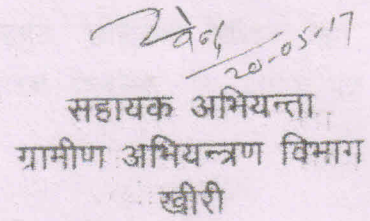 20-05-17
सहायक अभियन्ता
ग्रामीण अभियन्त्रण विभाग
खीरी